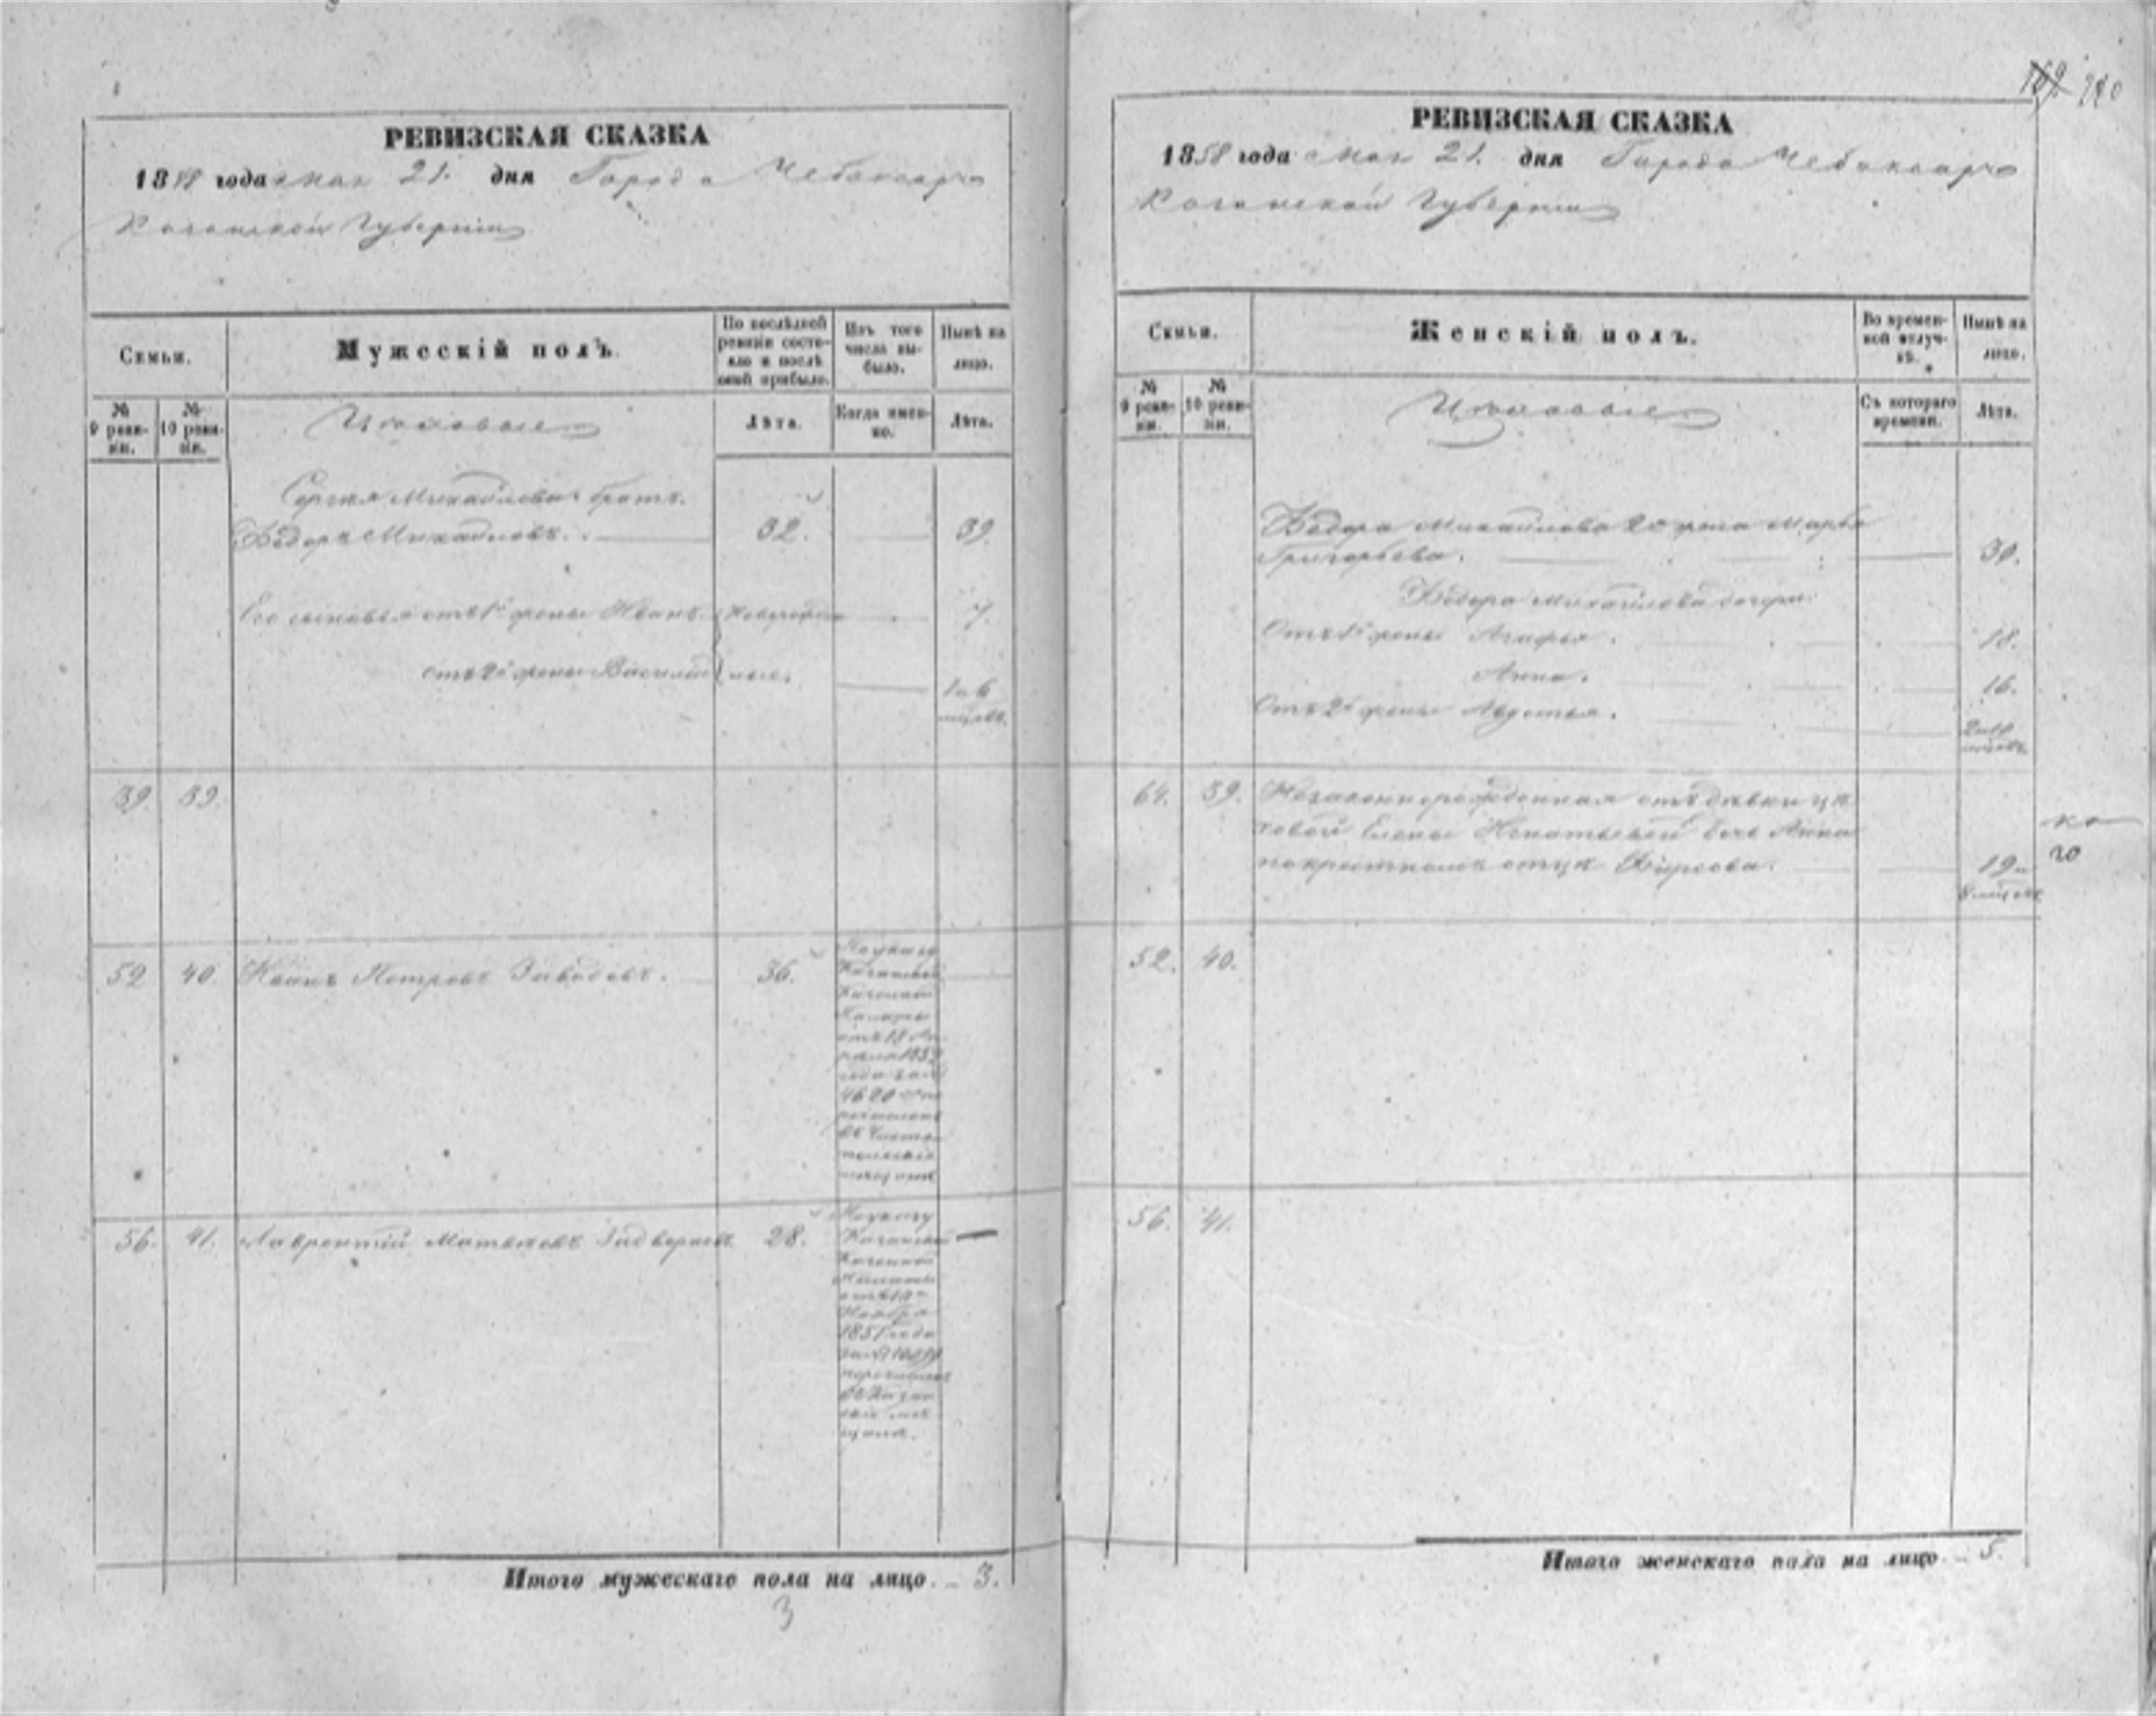 РЕВИЗСКАЯ СКАЗКА
1858 года мая 21. дня Города Чебоксаръ
Казанской Губерніи
Семьи.
Мужескій полъ.
По послѣдней ревизіи состояло и послѣ оной прибыло.
Изъ того числа выбыло.
Нынѣ на лицо.
№ 9 ревизіи.
№ 10 ревизіи.
Цѣховые
Лѣта.
Когда именно.
Лѣта.
Сергѣя Михайлова братъ
Ѳедоръ Михайловъ. 32. 39.
Его сыновья отъ 1й жены Иванъ Новорожден 7.
отъ 2й жены Василій ные. 1 и 6
мѣсяц.
39 39.
52 40. Иванъ Петровъ Заводовъ. 36.
По указу
Казанской
Казенной
Палаты
отъ 18 Ап
рѣля 1852
года за №
4620
перечисленъ
въ Чисто
польскіе
мѣщане
56. 41. Лаврентій Матвѣевъ 28.
По указу
Казанской
Казенной
Палаты
отъ
Ноября
1851 года
за №
перечисленъ
въ Казан
скіе мѣ
щане.
Итого мужескаго пола на лицо 3.
3
169 170
РЕВИЗСКАЯ СКАЗКА
1858 года мая 21. дня Города Чебоксаръ
Казанской Губерніи
Семьи.
Женскій полъ.
Во временной отлучкѣ.
Нынѣ на лицо.
№ 9 ревизіи.
№ 10 ревизіи.
Цѣховые
Съ котораго времени.
Лѣта.
Ѳедора Михайлова 2я жена Марья
Григорьева. 30.
Ѳедора Михайлова дочери
Отъ 1й жены Агафья. 18.
Анна. 16.
Отъ 2й жены Авдотья.
64. 39. Незаконнорожденная отъ дѣвки цѣ
ховой Елены Игнатьевой дочь Анна
по крестномъ отцѣ Фирсова. 19 и
8 мѣсяц
ко
го
52. 40.
56. 41.
Итого женскаго пола на лицо 5.